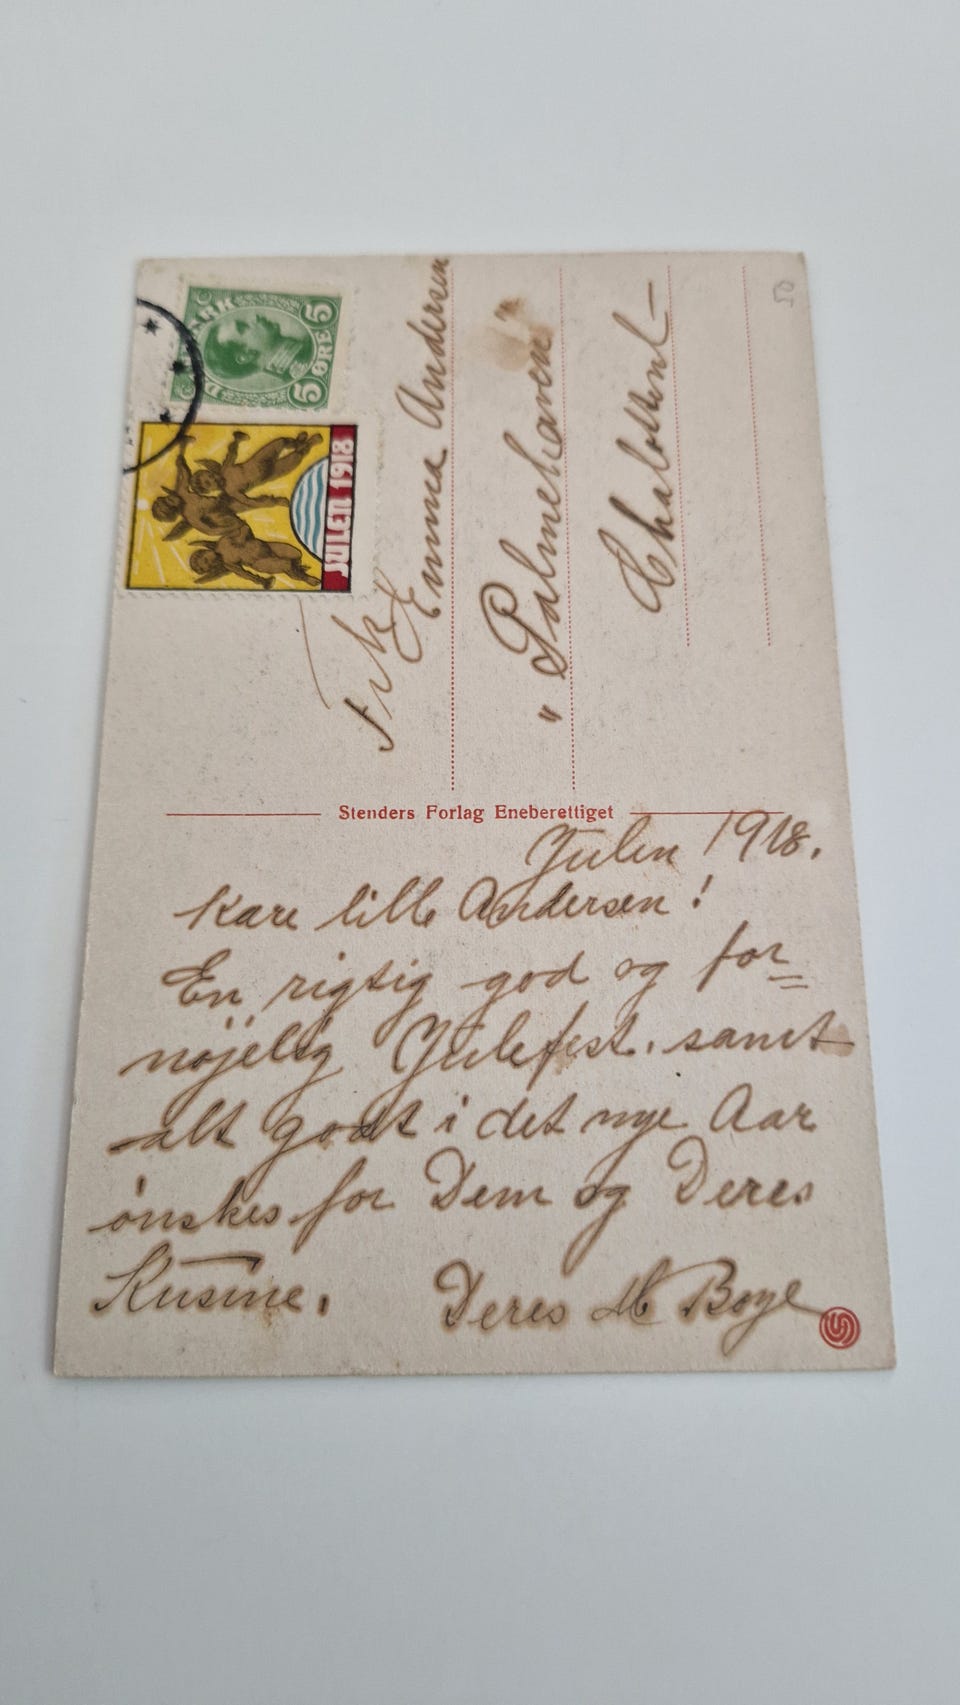 DANMARK
5 ØRE 5
JULEN 1918
Frk
Emma Andersen
"Palmehaven"
Chalottenl—
50
Stenders Forlag Eneberettiget
Julen 1918.
Kære lille Andersen!
En rigtig god og for=
nøjelig Julefest. samt
alt godt i det nye Aar
ønskes for Dem og Deres
Kusine.
Deres M Boye